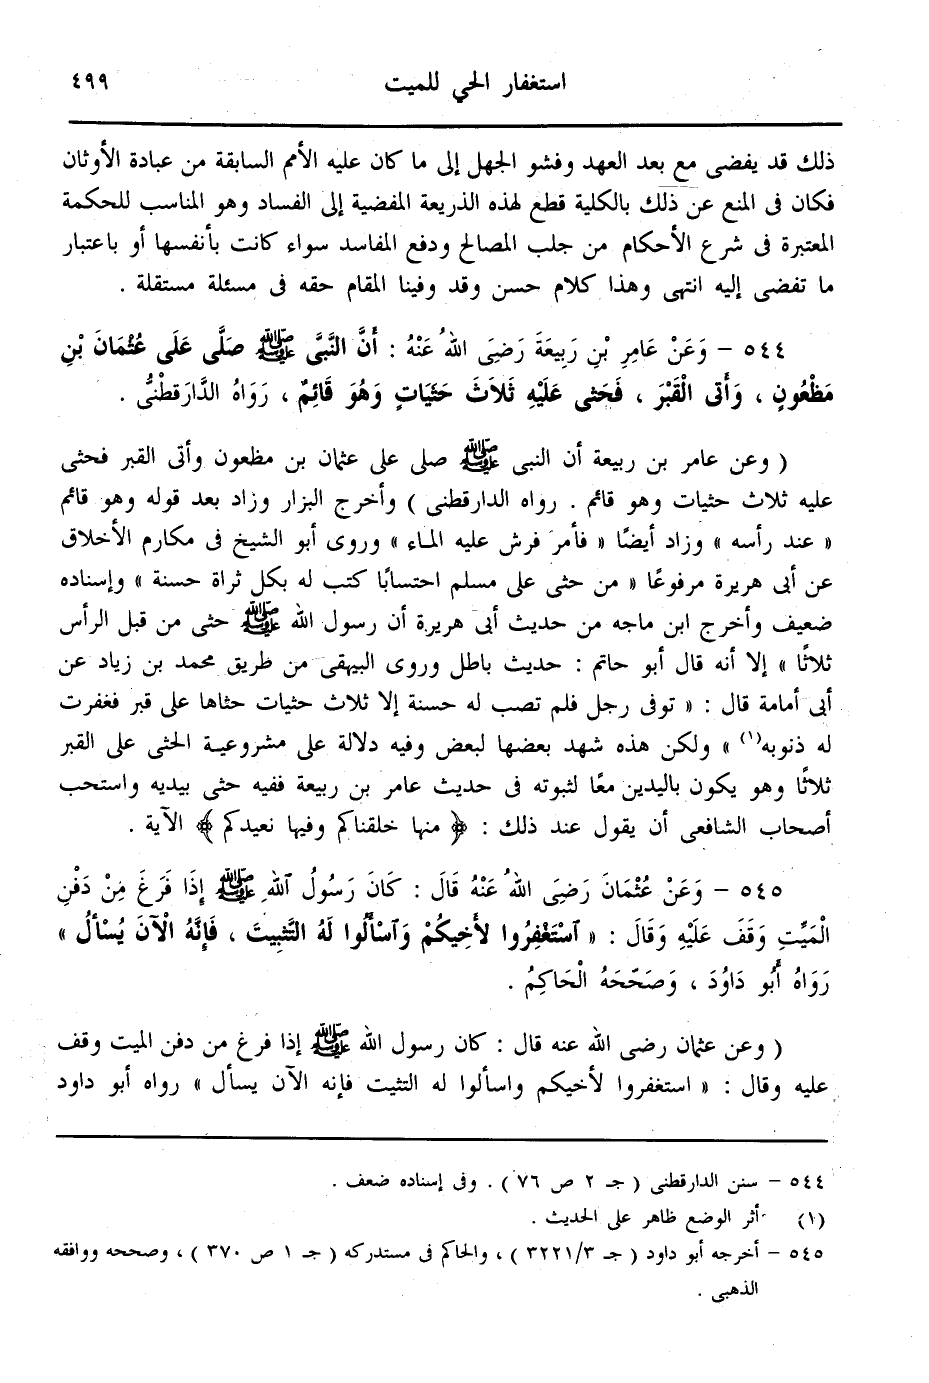 استغفار الحي للميت ٤٩٩
ذلك قد يفضى مع بعد العهد وفشو الجهل إلى ما كان عليه الأمم السابقة من عبادة الأوثان
فكان فى المنع عن ذلك بالكلية قطع لهذه الذريعة المفضية إلى الفساد وهو المناسب للحكمة
المعتبرة فى شرع الأحكام من جلب المصالح ودفع المفاسد سواء كانت بأنفسها أو باعتبار
ما تفضى إليه انتهى وهذا كلام حسن وقد وفينا المقام حقه فى مسئلة مستقلة .
٥٤٤ – وَعَنْ عَامِرِ بْنِ رَبِيعَةَ رَضِىَ اللهُ عَنْهُ : أَنَّ النَّبِىَّ ﷺ صَلَّى عَلَى عُثْمَانَ بْنِ
مَظْعُونٍ ، وَأَتى الْقَبْرَ ، فَحَثى عَلَيْهِ ثَلَاثَ حَثَيَاتٍ وَهُوَ قَائِمٌ ، رَوَاهُ الدَّارَقطْنىُّ .
( وعن عامر بن ربيعة أن النبى ﷺ صلى على عثمان بن مظعون وأتى القبر فحثى
عليه ثلاث حثيات وهو قائم . رواه الدارقطنى ) وأخرج البزار وزاد بعد قوله وهو قائم
« عند رأسه » وزاد أيضًا « فأمر فرش عليه الماء » وروى أبو الشيخ فى مكارم الأخلاق
عن أبى هريرة مرفوعًا « من حثى على مسلم احتسابًا كتب له بكل ثراة حسنة » وإسناده
ضعيف وأخرج ابن ماجه من حديث أبى هريرة أن رسول الله ﷺ حثى من قبل الرأس
ثلاثًا » إلا أنه قال أبو حاتم : حديث باطل وروى البيهقى من طريق محمد بن زياد عن
أبى أمامة قال : « توفى رجل فلم تصب له حسنة إلا ثلاث حثيات حثاها على قبر فغفرت
له ذنوبه(١) » ولكن هذه شهد بعضها لبعض وفيه دلالة على مشروعية الحثى على القبر
ثلاثًا وهو يكون باليدين معًا لثبوته فى حديث عامر بن ربيعة ففيه حثى بيديه واستحب
أصحاب الشافعى أن يقول عند ذلك : ﴿ منها خلقناكم وفيها نعيدكم ﴾ الآية .
٥٤٥ – وَعَنْ عُثْمَانَ رَضِىَ اللهُ عَنْهُ قَالَ : كَانَ رَسُولُ ٱللهِ ﷺ إِذَا فَرَغَ مِنْ دَفْنِ
الْمَيِّتِ وَقَفَ عَلَيْهِ وَقَالَ : « ٱسْتَغْفِرُوا لأَخِيكُمْ وَٱسْأَلُوا لَهُ التَّثبِيتَ ، فَإِنَّهُ الْآنَ يُسْأَلُ »
رَوَاهُ أَبُو دَاوُدَ ، وَصَحّحَهُ الْحَاكِمُ .
( وعن عثمان رضى الله عنه قال : كان رسول الله ﷺ إذا فرغ من دفن الميت وقف
عليه وقال : « استغفروا لأخيكم واسألوا له التثيت فإنه الآن يسأل » رواه أبو داود
٥٤٤ – سنن الدارقطنى ( جـ ٢ ص ٧٦ ) . وفى إسناده ضعف .
(١) أثر الوضع ظاهر على الحديث .
٥٤٥ – أخرجه أبو داود ( جـ ٣٢٢١/٣ ) ، والحاكم فى مستدركه ( جـ ١ ص ٣٧٠ ) ، وصححه ووافقه
الذهبى .